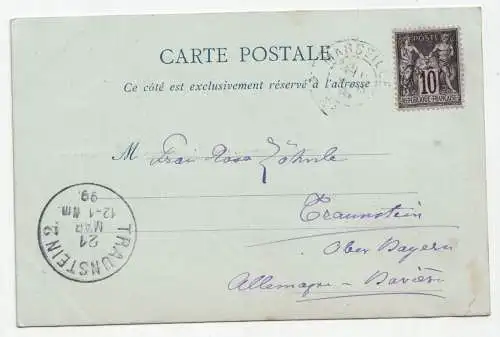 CARTE POSTALE
Ce côté est exclusivement réservé à l'adresse
MARSEILLE
POSTE
10
REPUBLIQUE FRANÇAISE
M Frau Rosa
Traunstein
Ober Bayern
Allemagne - Bavière
TRAUNSTEIN 2.
21
MÄR
12-1 Nm.
99.